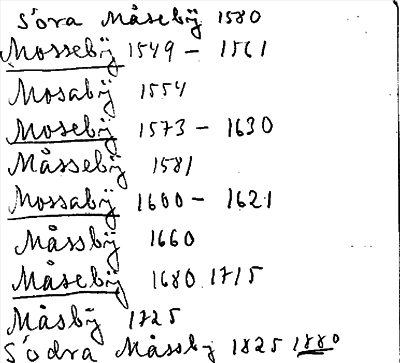 Söra Måsebÿ 1580
Mossebÿ 1549 – 1561
Mosabÿ 1554
Mosebÿ 1573 – 1630
Måssebÿ 1581
Mossabÿ 1600 – 1621
Måssbÿ 1660
Måsebÿ 1680 1715
Måsbÿ 1725
Södra Måssby 1825 1880